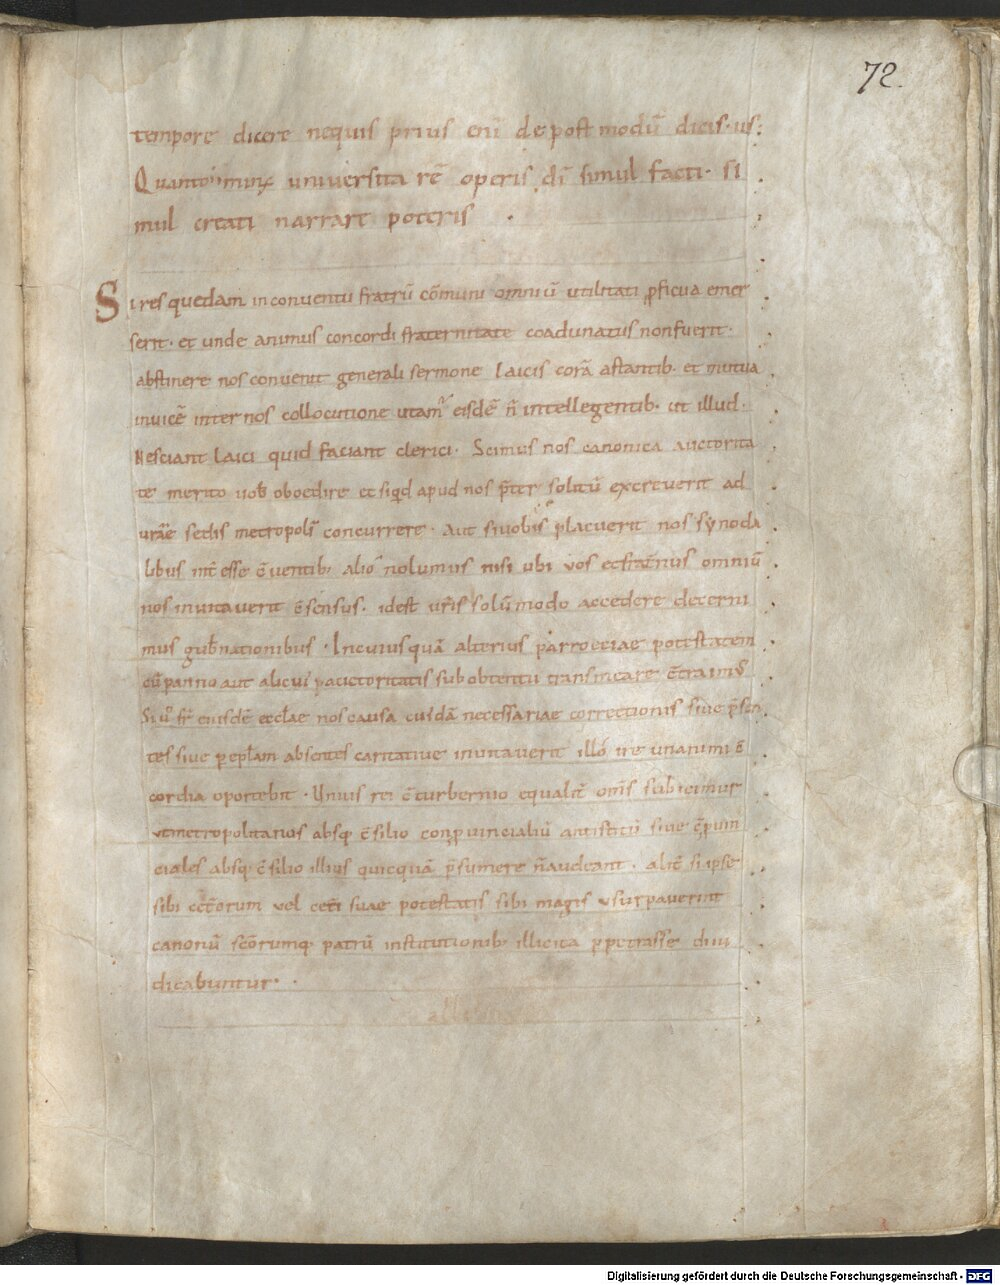 72.
tempore dicere nequis prius eni͞ depost modu͞ dicis. us;
Quanto minꝰ universita re͞ operis di͞ simul facti. si
mul creati narrare poteris .
Si res quedam in conventu fratru͞ co͞muni omniu͞ utilitati ꝓficua emer
serit. et unde animus concordi fraternitate coadunatus non fuerit.
abstinere nos convenit generali sermone laicis cora͞ astantib. et mutua
invice͞ inter nos collocutione utam᷒ eisde͞ n͞ intellegentib. ut illud.
Nesciant laici quid faciant clerici. Scimus nos canonica auctorita
te merito uob͞ oboedire et siqd apud nos p͞ter solitu͞ excreverit ad
vr͞ae sedis metropoli͞ concurrere. Aut si vobis placuerit nos synoda
libus int͞esse c͞ventib; alio᷒ nolumus nisi ubi vos et frat͞nus omniu͞
nos invitaverit c͞sensus. idest vr͞is solu͞modo accedere decerni
mus gub͞nationibus. In cuiusqua͞ alterius parroeciae potestatem
cu͞ panno aut alicui ꝑ auctoritatis sub obtentu transmeare c͞traimꝰ
Si u͞ fr͞ eiusde͞ eccl͞ae nos causa cuida͞ necessariae correctionis sive p͞sen
tes sive ꝑ epl͞am absentes caritative invitaverit illo͞ ire unanimi c͞
cordia oportebit. Unius rei c͞turbernio equalit͞ om͞s subicimur
ut metropolitanus absq; c͞silio conꝓvincialiu͞ antistitu͞ sive c͞ꝓvin
ciales absq; c͞silio illius quicqua͞ p͞sumere n͞ audeant. alit͞ si ipse
sibi cet͞orum vel cet͞i suae potestatis sibi magis usurpaverint
canonu͞ sc͞orumq; patru͞ institutionib; illicita ꝑpetrasse diiu
dicabuntur.